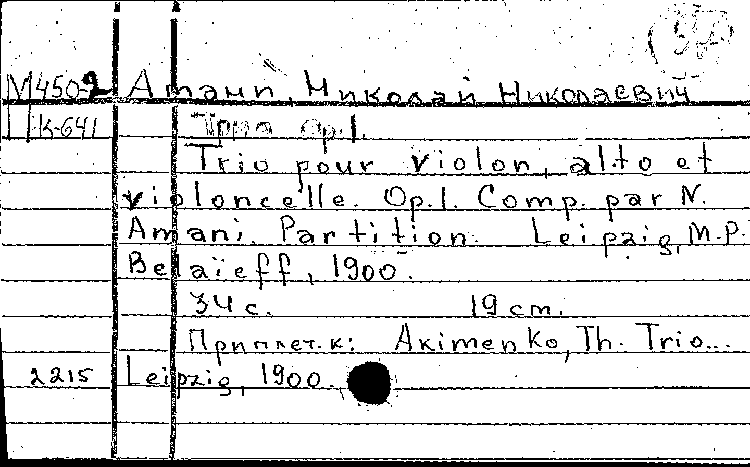 М450-2 Амани, Николай Николаевич
К-641 Трио Op.1.
Trio pour violon, alto et
violoncelle. Op.1. Comp. par N.
Amani. Partition. Leipzig, M.P.
Belaïeff, 1900.
34 с. 19 cm.
Приплет. к: Akimenko, Th. Trio...
2215 Leipzig, 1900.